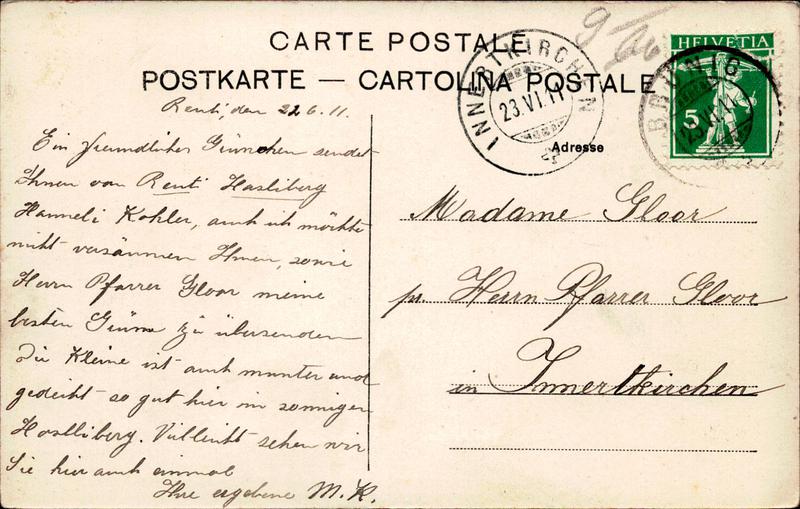 CARTE POSTALE
POSTKARTE — CARTOLINA POSTALE
HELVETIA
5
INNERTKIRCHEN
23.VI.11
23.VI.11
Adresse
Reuti, den 22.6.11.
Ein freundliches Grüsschen sendet
Ihnen von Reuti Hasliberg
Hanneli Kohler, auch ich möchte
nicht versäumen Ihnen, sowie
Herrn Pfarrer Gloor meine
besten Grüsse zu übersenden
Die Kleine ist auch munter und
gedeiht so gut hier im sonnigen
Haslliberg. Vielleicht sehen wir
Sie hier auch einmal
Ihre ergebene M. K.
Madame Gloor
pr. Herrn Pfarrer Gloor
in Innertkirchen